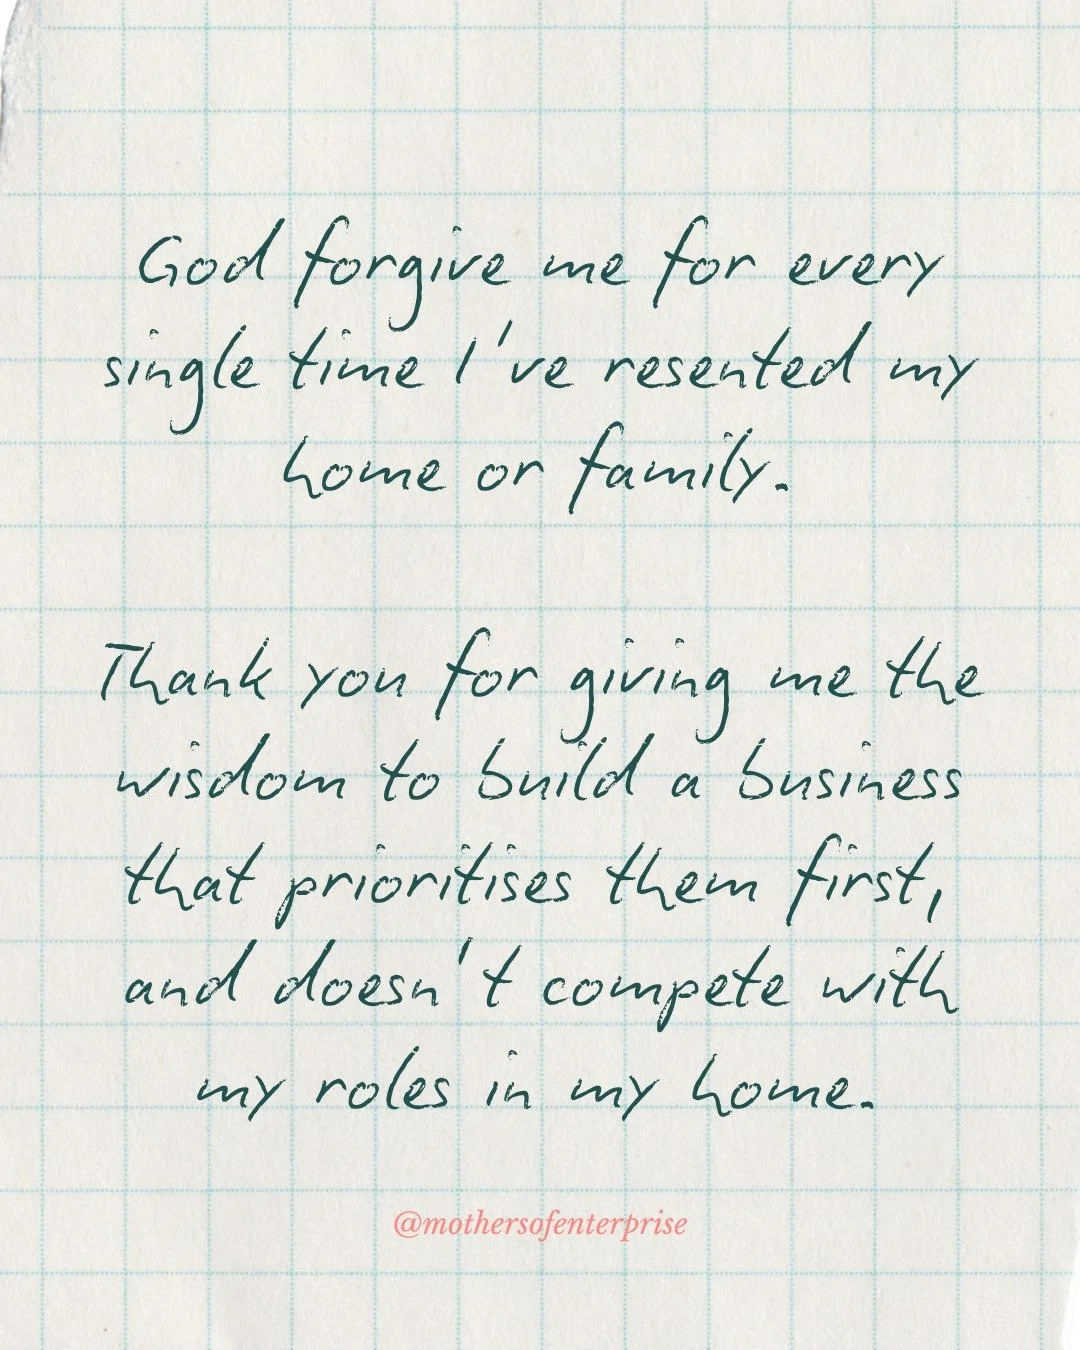 God forgive me for every
single time I've resented my
home or family.
Thank you for giving me the
wisdom to build a business
that prioritises them first,
and doesn't compete with
my roles in my home.
@mothersofenterprise